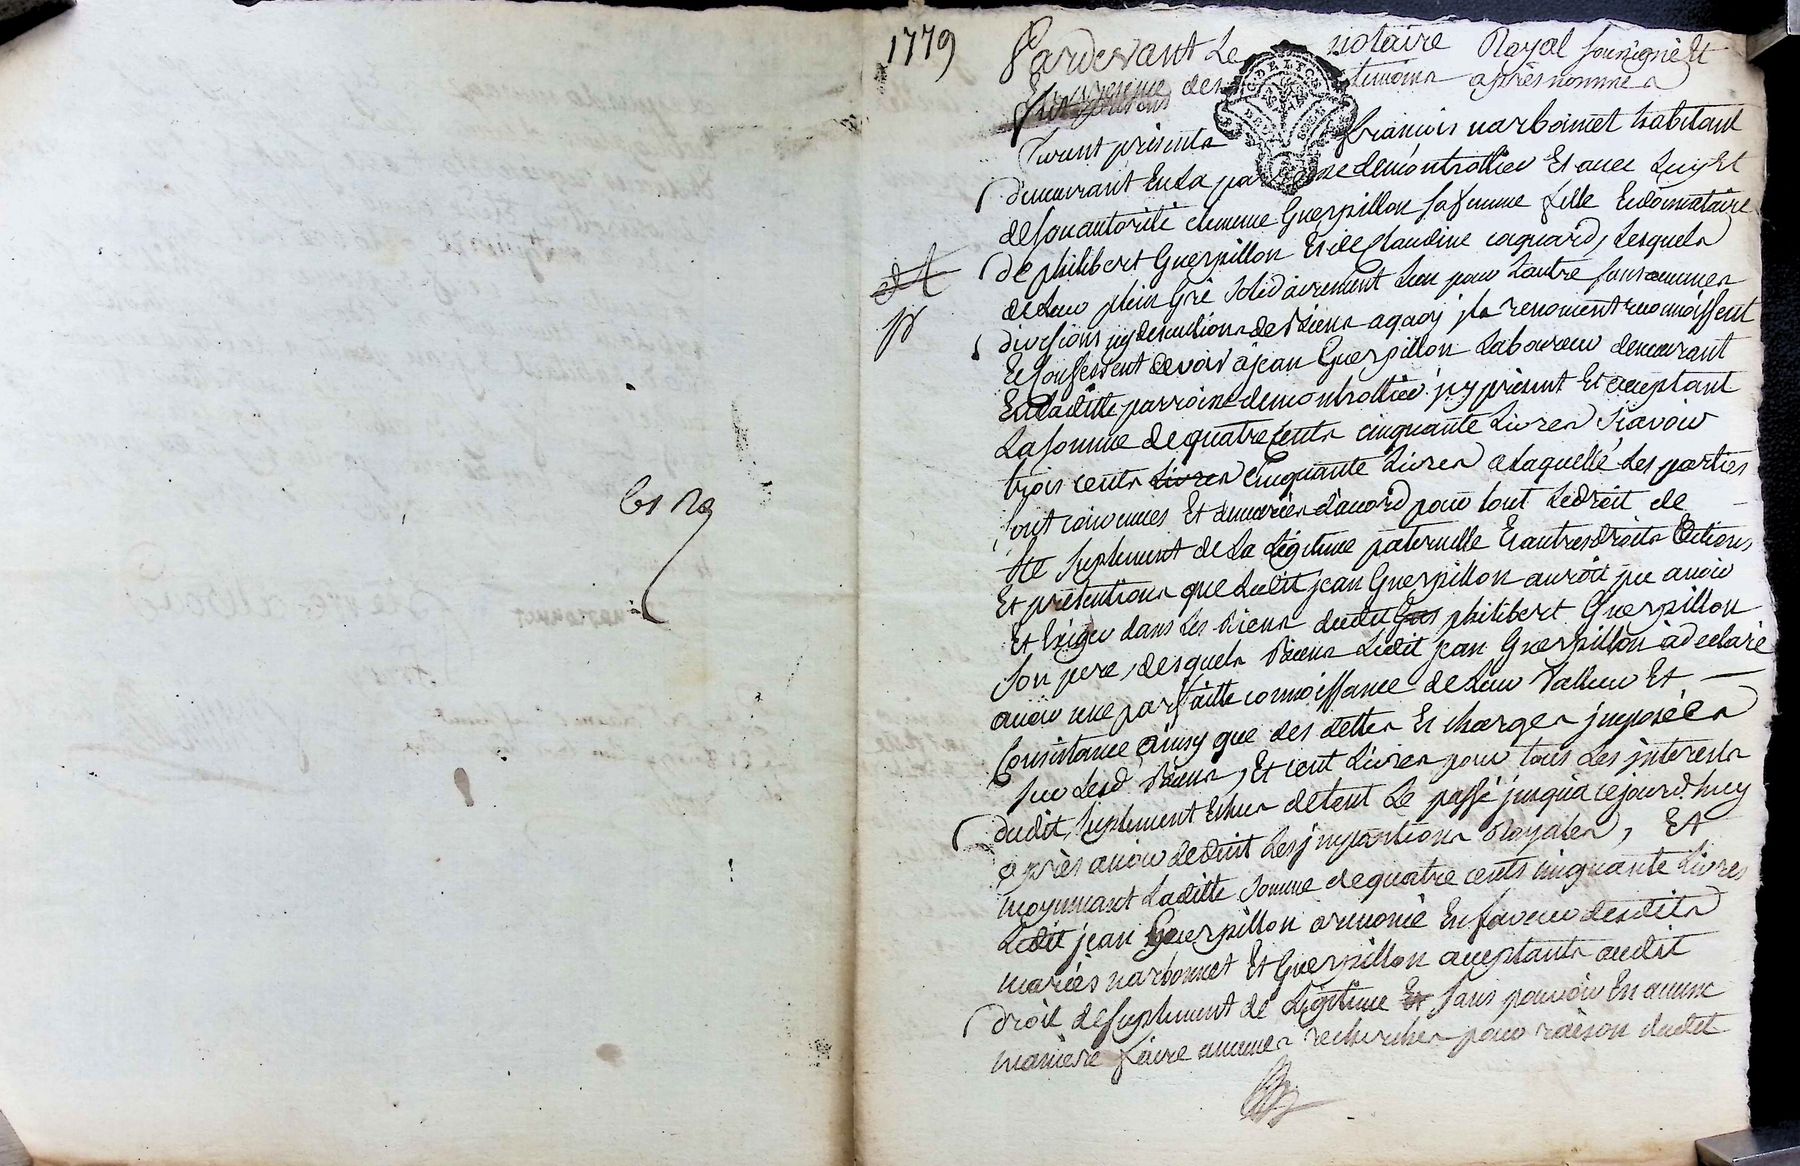 1779
Pardevant Le notaire Royal soussigné Et
En presence des temoins après nommés
furent presents françois narbonnet habitant
demeurant En La parroisse demontrottier Et avec Luy Et
deson autorité Guerpillon sa femme fille Endonnataire
de philibert Guerpillon Et de Claudine coquard, Lesquels
deLeur plein Gré Solidairement Lun pour Lautre sans aucunes
divisions ny descutions de biens aquoy jls renoncent reconnoissent
Et Confessent devoir a jean Guerpillon Laboureur demeurant
En Laditte parroisse demontrottier jcy present Et acceptant
La somme de quatre Cents cinquante Livres Scavoir
trois cents Livres Cinquante Livres a Laquelle Les parties
sont convenues Et demeurées d'accord pour tout Ledroit de
suplement de La Légitime paternelle Et autres droits actions
Et pretentions que Ledit jean Guerpillon auroit pu avoir
Et Exiger dans Les biens dudit philibert Guerpillon
son pere, desquels biens Ledit jean Guerpillon a declaré
avoir une parfaitte connoissance de Leur Valleur Et
Consistance ainsy que des dettes Et charges jmposées
sur Lesd. biens, Et cent Livres pour tous Les jnterests
dudit suplement Echus detout Le passé jusqua cejourd.huy
après avoir deduit Les jmpositions Royales, Et
moyennant Laditte Somme dequatre cents cinquante Livres
Ledit jean Guerpillon a renoncé En faveur desdits
mariés narbonnet Et Guerpillon acceptants audit
droit desuplement de Légitime Et sans pouvoir En aucune
maniere faire aucunes recherches pour raison dudit